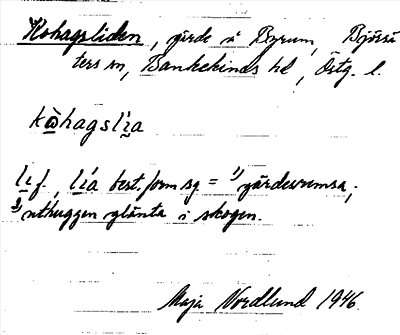 Kohagsliden, gärde i Byrum, Bjärsä
ters sn, Bankekinds hd, Östg. l.
kò̱hagslì̱a
lı f., lı́a best. form sg = 1) gärdesremsa;
2) uthuggen glänta i skogen.
Maja Nordlund 1946.